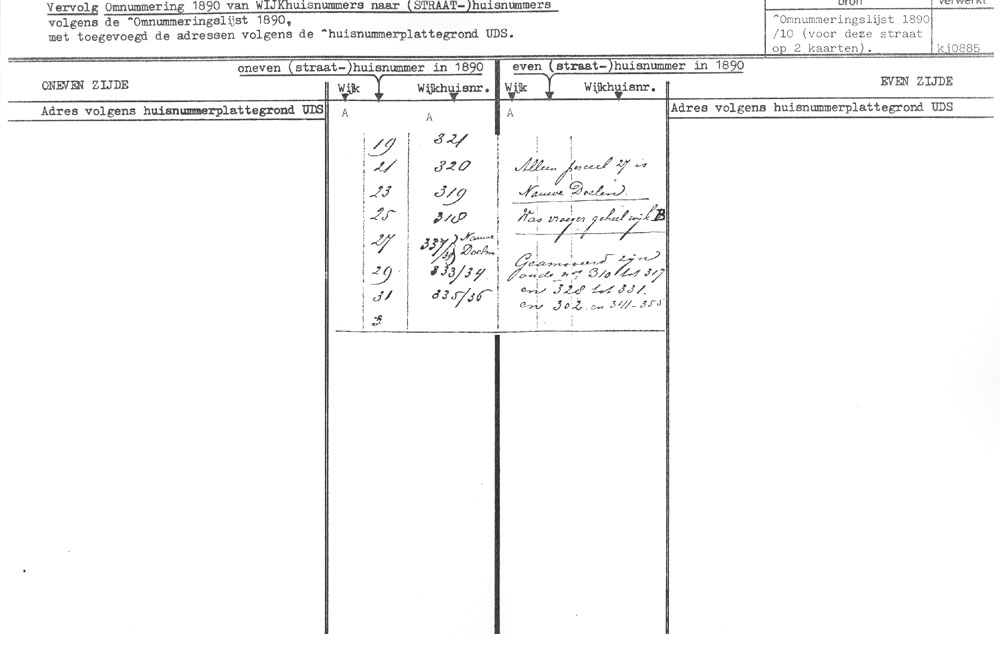 Vervolg Omnummering 1890 van WIJKhuisnummers naar (STRAAT-)huisnummers
volgens de ^Omnummeringslijst 1890,
met toegevoegd de adressen volgens de ^huisnummerplattegrond UDS.
bron verwerkt
^Omnummeringslijst 1890
/10 (voor deze straat
op 2 kaarten). kj0885
oneven (straat-)huisnummer in 1890 even (straat-)huisnummer in 1890
ONEVEN ZIJDE Wijk Wijkhuisnr. Wijk Wijkhuisnr. EVEN ZIJDE
Adres volgens huisnummerplattegrond UDS A A A Adres volgens huisnummerplattegrond UDS
19 321
21 320 Alleen perceel 27 is
23 319 Nauwe Doelen.
25 318 Was vroeger geheel wijk B
27 337/ Nauwe
Doelen
Geamoveerd zijn
29 333/34 oude nrs 310 tot 317
31 335/36 en 328 tot 331.
en 302 en 341-355
3